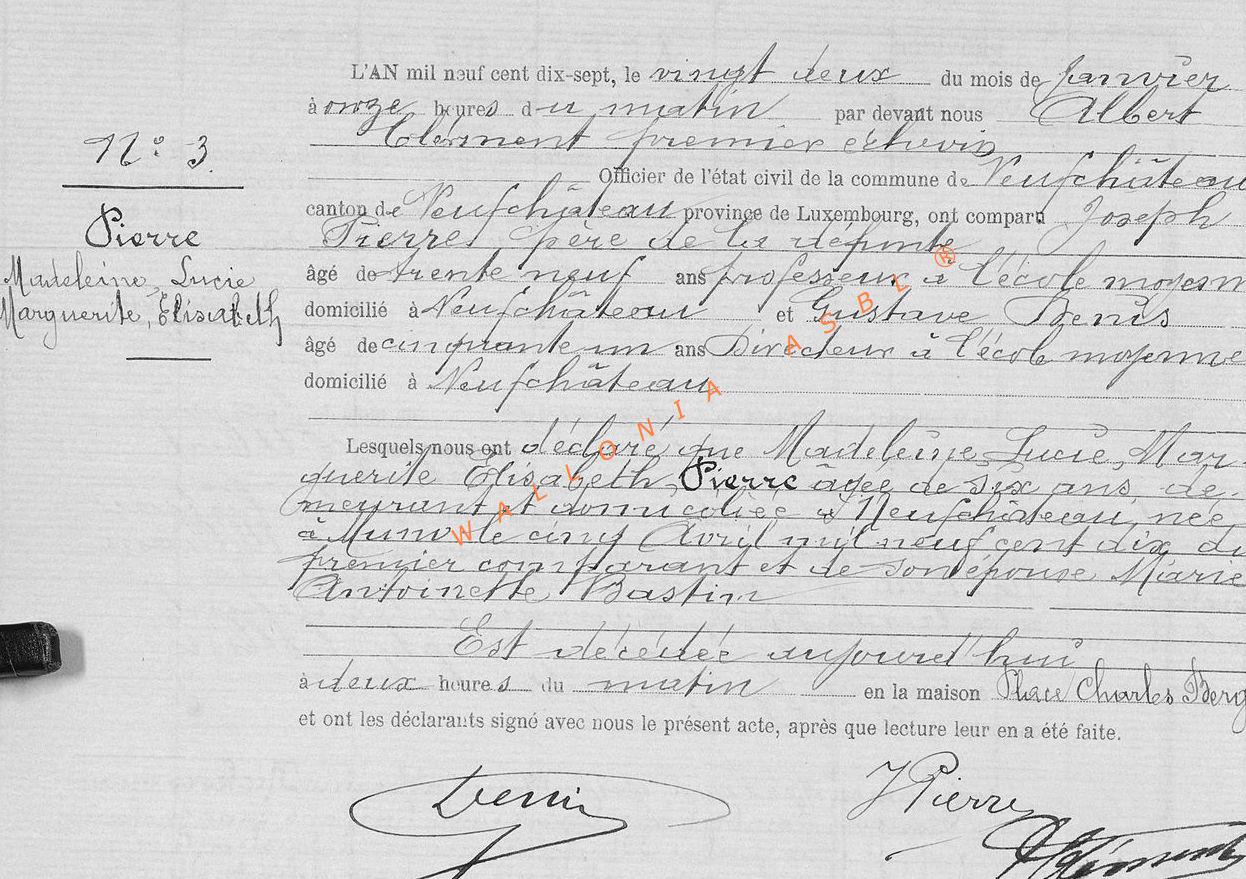 L'AN mil neuf cent dix-sept, le vingt deux du mois de Janvier
à onze heures du matin par devant nous Albert
Clément premier échevin
N° 3.
Officier de l'état civil de la commune de Neufchâteau
canton de Neufchâteau province de Luxembourg, ont comparu Joseph
Pierre
Pierre, père de la défunte
Madeleine, Lucie
âgé de trente neuf ans professeur à l'école moyenn
Marguerite, Elisabeth
domicilié à Neufchâteau et Gustave Denis
âgé de cinquante un ans Directeur à l'école moyenne
domicilié à Neufchâteau
WALLONIA ASBL ®
Lesquels nous ont déclaré que Madeleine, Lucie, Mar-
guerite Elisabeth Pierre âgée de six ans, de-
meurant et domiciliée à Neufchâteau, née
à Muno le cinq Avril mil neuf cent dix du
premier comparant et de son épouse Marie
Antoinette Bastin
Est décédée aujourd'hui
à deux heures du matin en la maison Place Charles Berg
et ont les déclarants signé avec nous le présent acte, après que lecture leur en a été faite.
Denis
J Pierre
A Clément